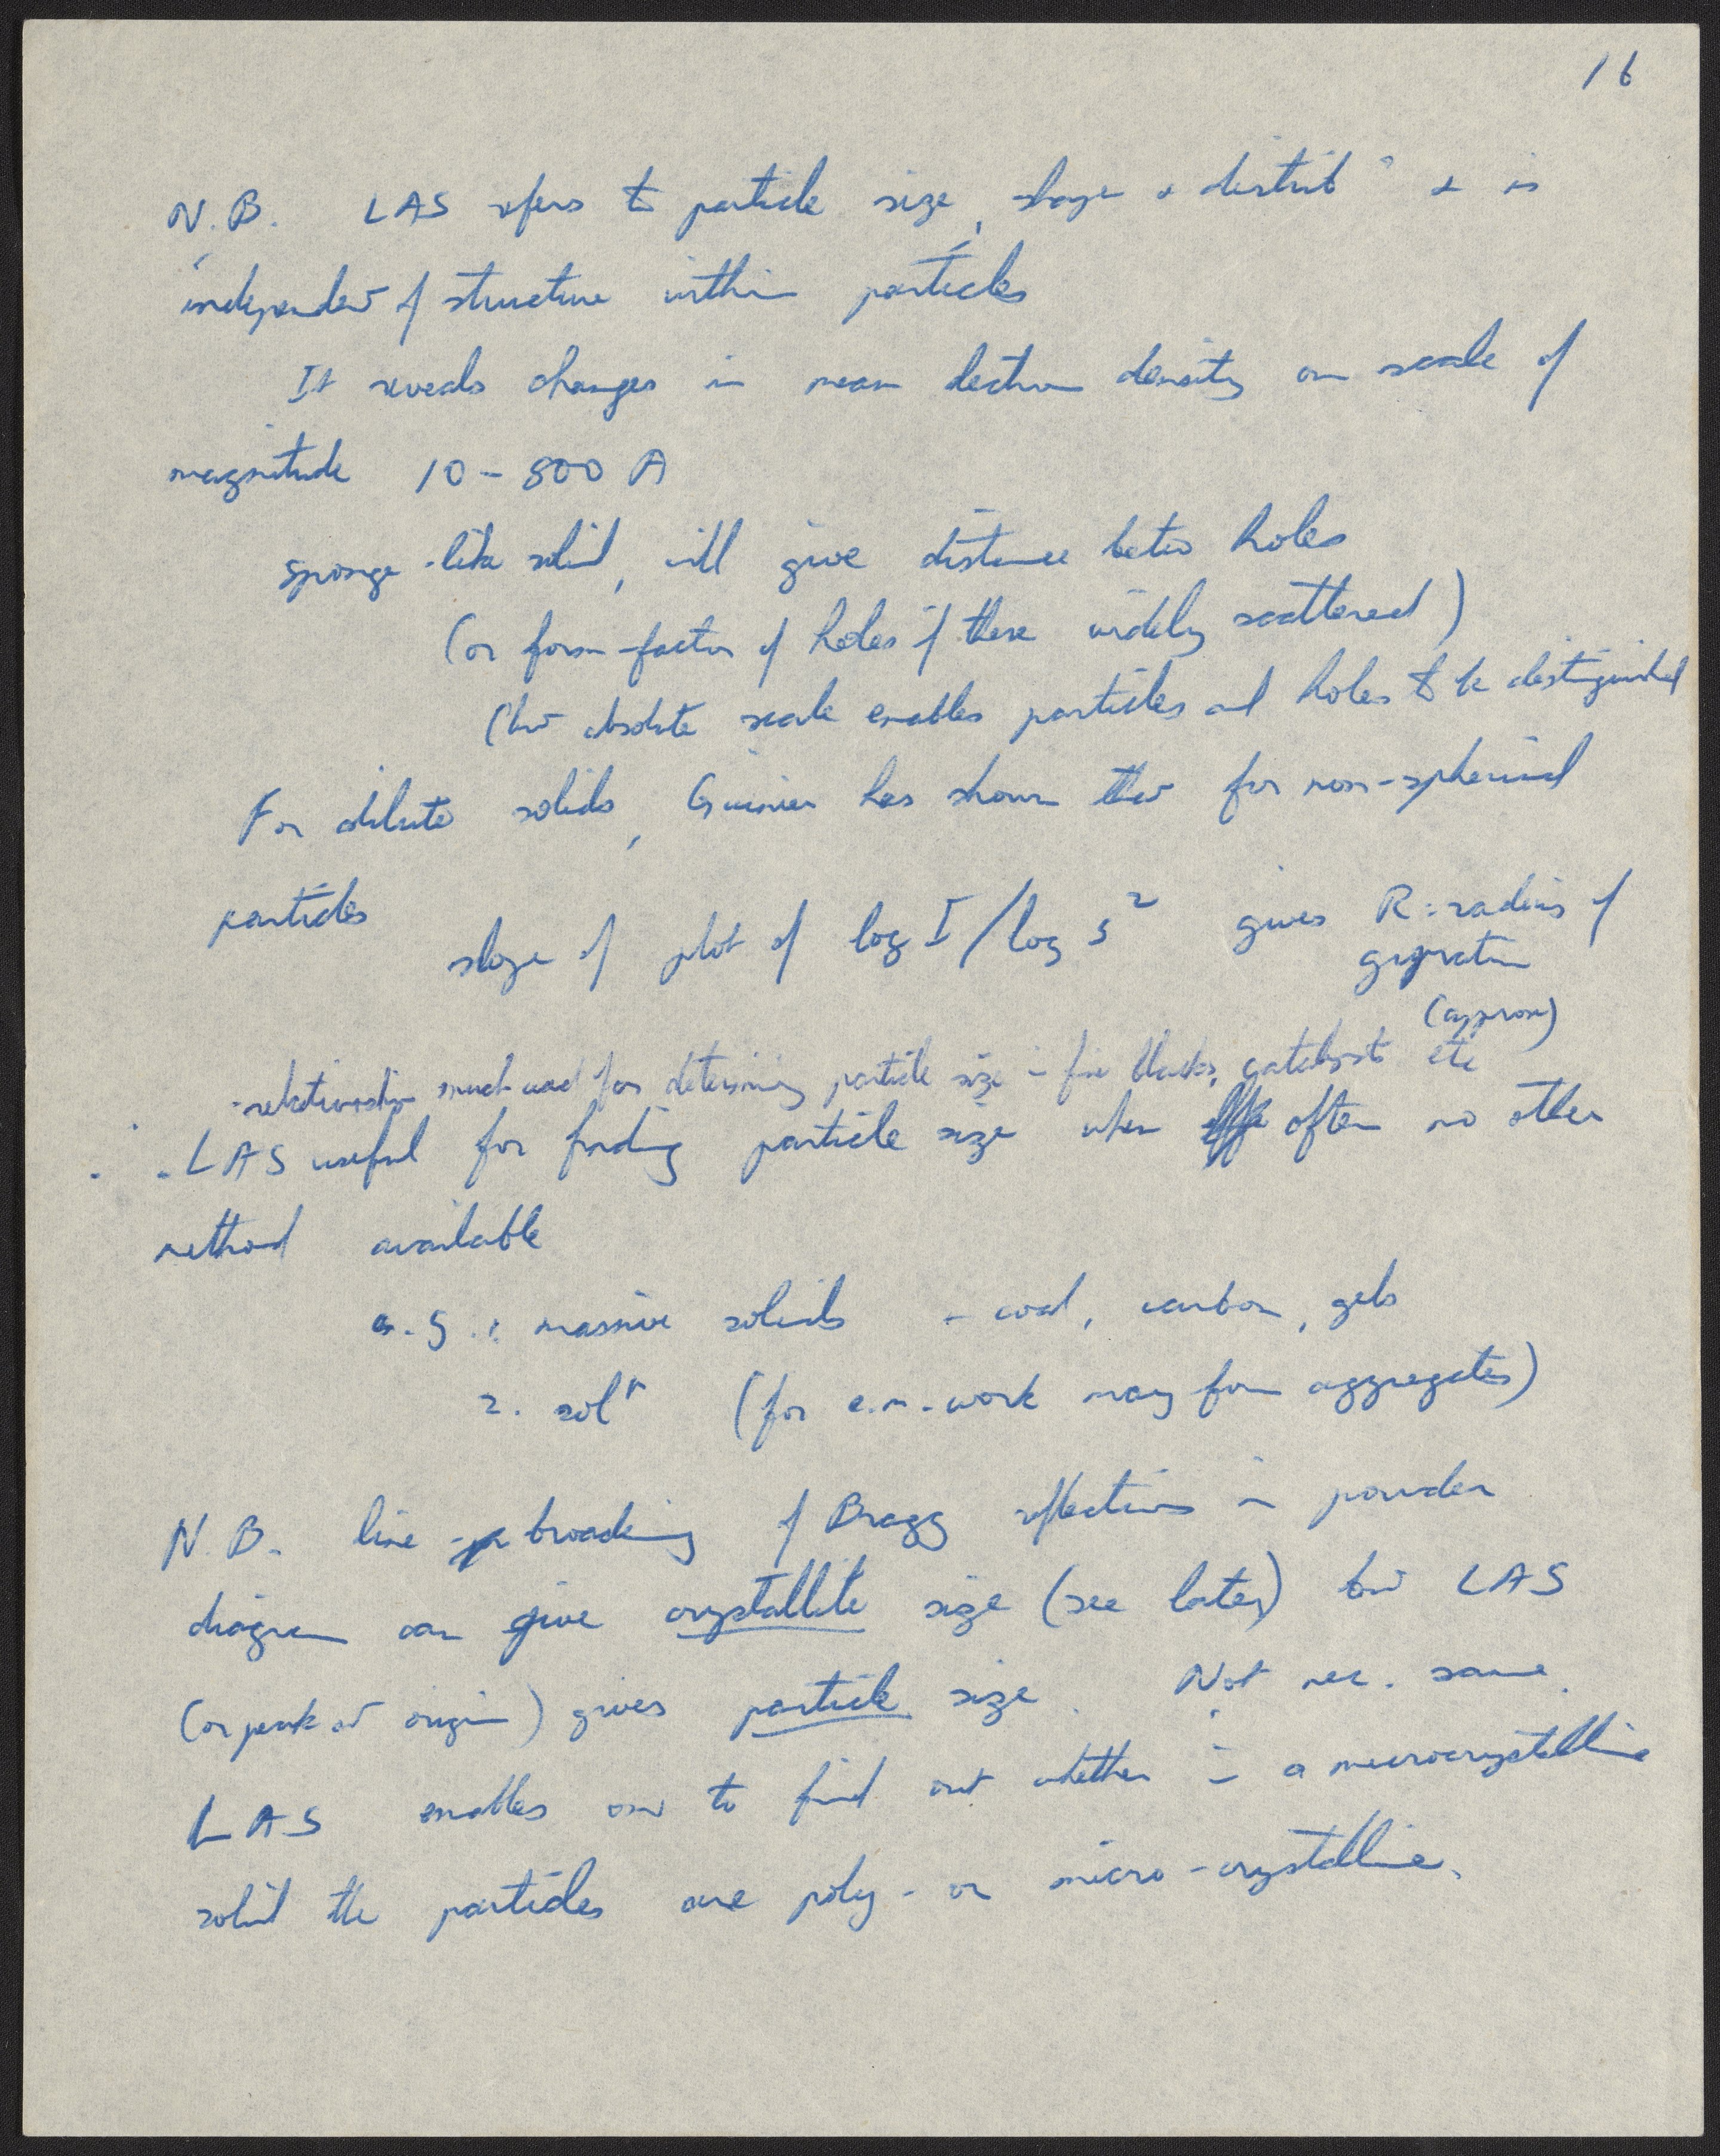 16
N.B. LAS refers to particle size, shape & distribⁿ & is
independent of structure within particles
It reveals changes in mean electron density on scale of
magnitude 10 - 800 A
sponge-like solid, will give distance betw holes
(or form-factor of holes if these widely scattered)
(but absolute scale enables particles and holes to be distinguished
For dilute solids, Guinier has shown that for non-spherical
particles
slope of plot of log I/log s² gives R = radius of
gyration
(approx)
- relationship much used for determining particle size in fine blacks, catalysts etc
. . . LAS useful for finding particle size when often no other
method available
e.g. 1. massive solids - coal, carbon, gels
2. solⁿ (for e.m. work may form aggregates)
N.B. line broadening of Bragg reflections in powder
diagram can give crystallite size (see later) but LAS
(or peak at origin) gives particle size. Not nec. same.
LAS enables one to find out whether in a microcrystalline
solid the particles are poly- or micro-crystalline.